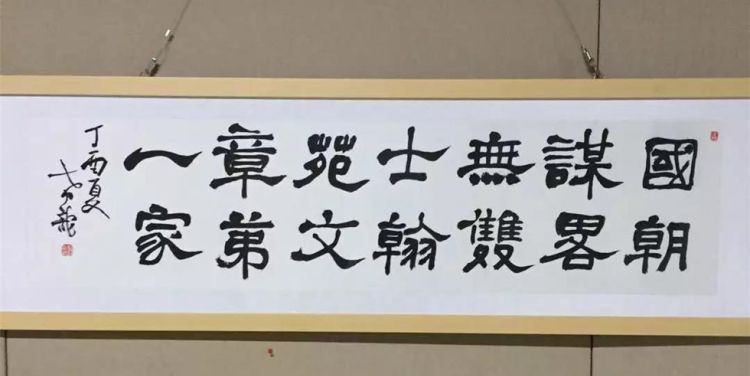 國朝
謀畧
無雙
士翰
苑文
章第
一家
丁酉夏